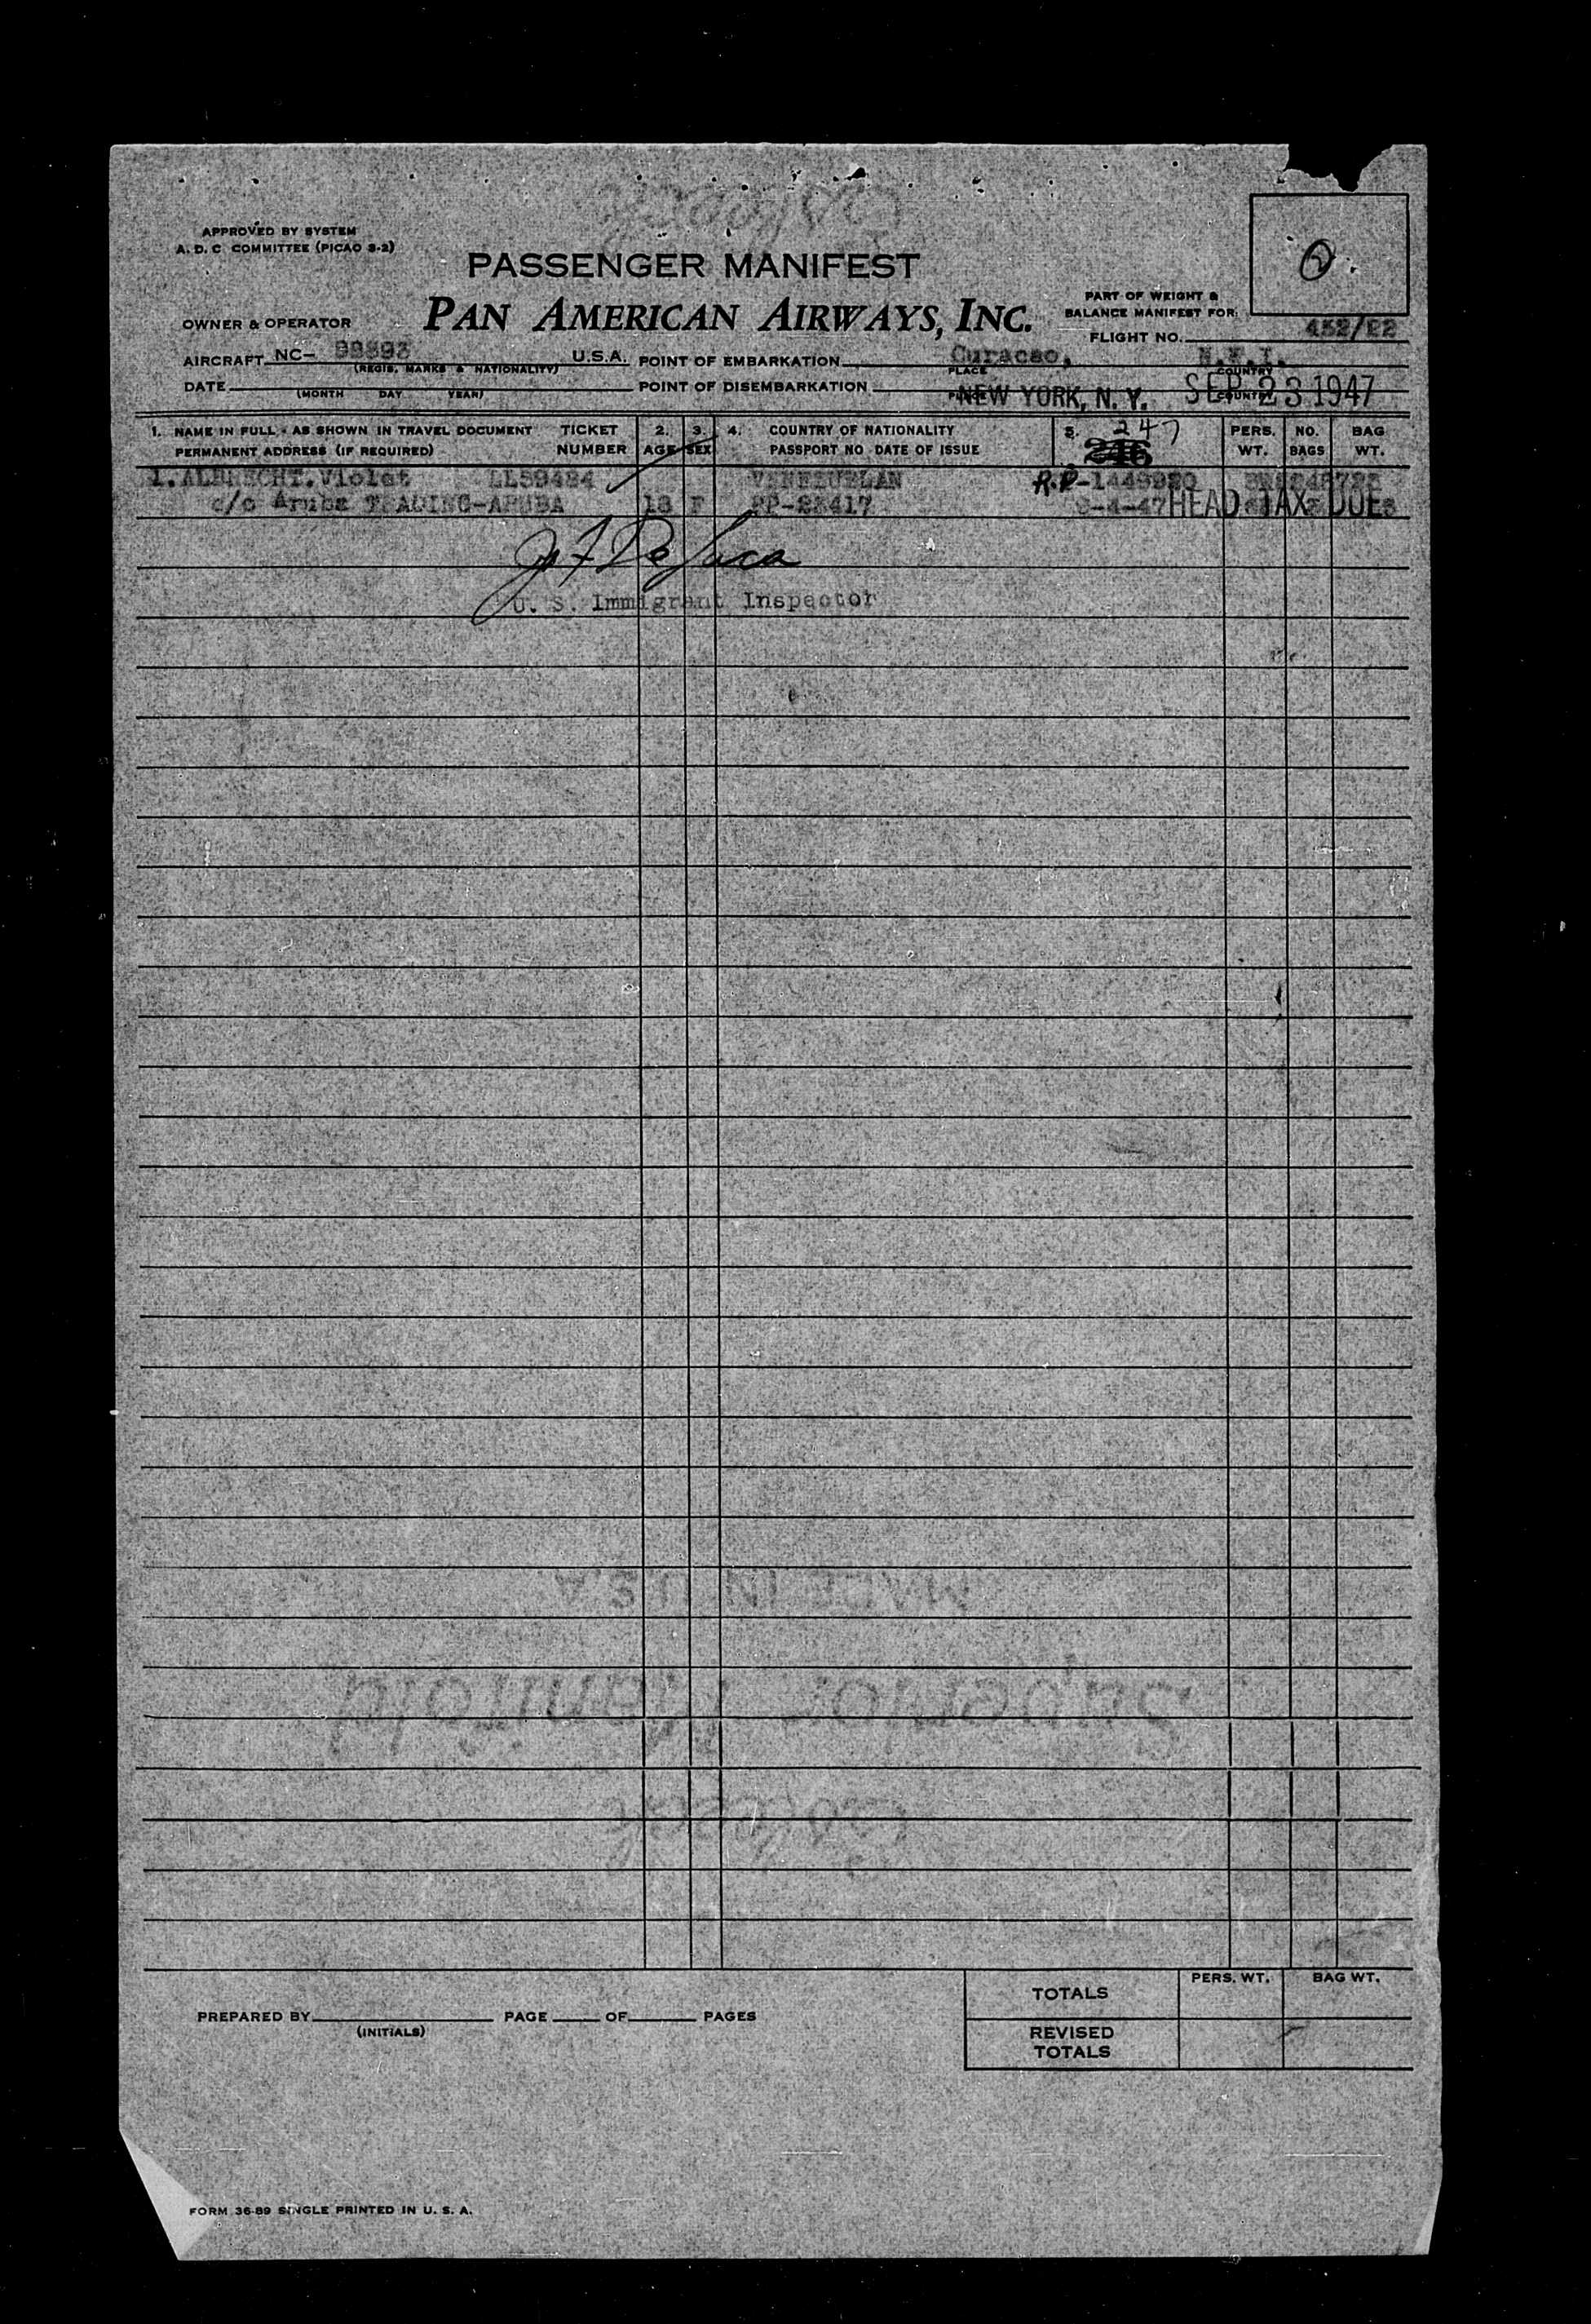 APPROVED BY SYSTEM
A. D. C COMMITTEE (PICAO S-2)
PASSENGER MANIFEST
PAN AMERICAN AIRWAYS, INC.
PART OF WEIGHT &
BALANCE MANIFEST FOR:
OWNER & OPERATOR
FLIGHT NO. 452/22
AIRCRAFT NC- 99893 U.S.A. POINT OF EMBARKATION Curacao, N.W.I.
(REGIS. MARKS & NATIONALITY) PLACE COUNTRY
DATE POINT OF DISEMBARKATION NEW YORK, N.Y. SEP 23 1947
(MONTH DAY YEAR) PLACE COUNTRY
1. NAME IN FULL - AS SHOWN IN TRAVEL DOCUMENT TICKET 2. 3. 4. COUNTRY OF NATIONALITY 5. 247 PERS. NO. BAG
PERMANENT ADDRESS (IF REQUIRED) NUMBER AGE SEX PASSPORT NO DATE OF ISSUE 246 WT. BAGS WT.
1. ALBRECHT. Violet LL59484 VENEZUELAN R.P-1449920
c/o Aruba TRADING-ARUBA 18 F PP-23417 9-4-47 HEAD TAX DUE
U. S. Immigrant Inspector
MADE IN U.S.A.
Superior Manifold
TOTALS PERS. WT. BAG WT.
PREPARED BY PAGE OF PAGES
(INITIALS)
REVISED
TOTALS
FORM 36-89 SINGLE PRINTED IN U. S. A.